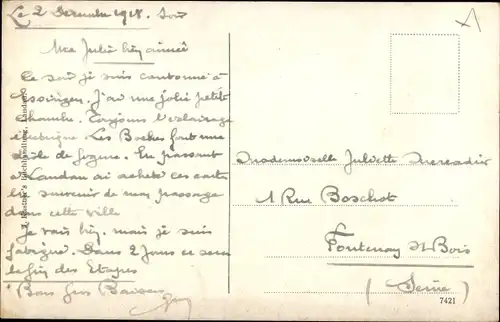 Le 2 Décembre 1918. Soir
Ma Juliè bien aimée
Ce soir je suis cantonné à
J'ai une jolie petite
chambre. Toujours l'éclairage
électrique. Les Boches font une
drôle de figure. En passant
à Landau ai acheté ces cartes
souvenir de mon passage
dans cette ville
Je vais bien, mais je suis
fatigué. Dans 2 jours ce sera
la fin des Etapes
Bons Gros Baisers
Mademoiselle Juliette
1 Rue Boschot
Fontenay s/ Bois
(Seine)
7421